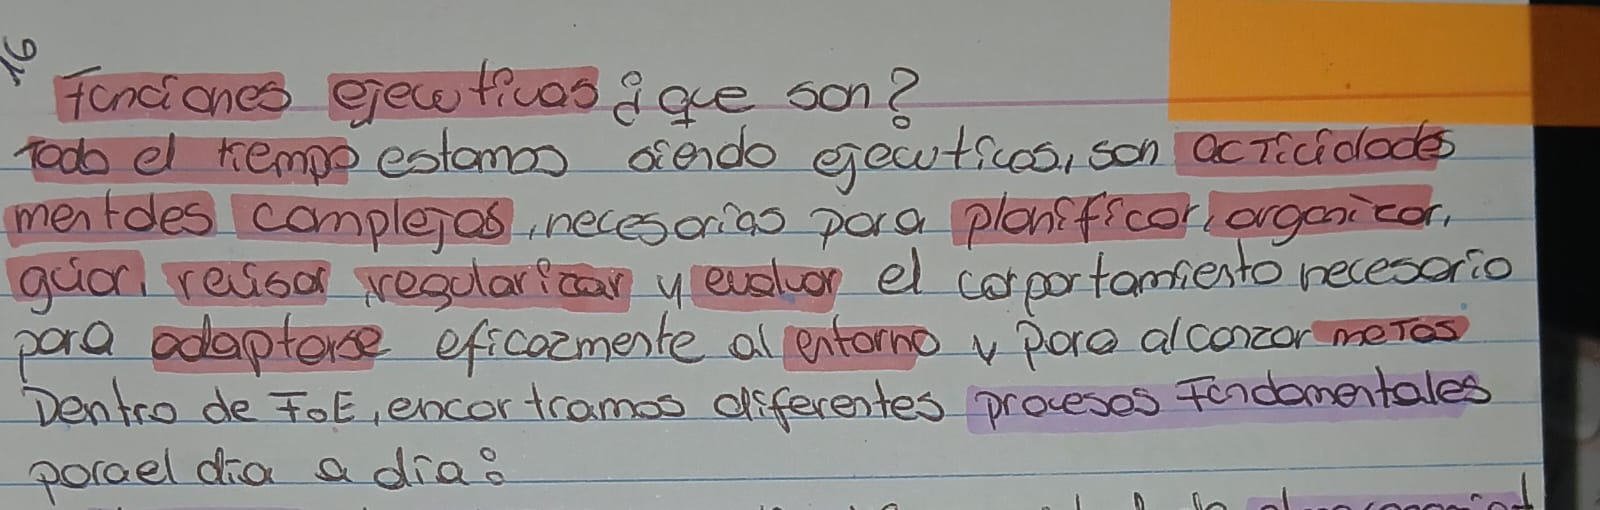 16
Funciones ejecutivas ¿que son?
Todo el tiempo estamos siendo ejecutivos, son actividades
mentales complejas, necesarias para planificar, organizar,
guiar, revisar, regularizar y evaluar el comportamiento necesario
para adaptarse eficazmente al entorno y para alcanzar metas
Dentro de FoE, encontramos diferentes procesos fundamentales
para el dia a dia: